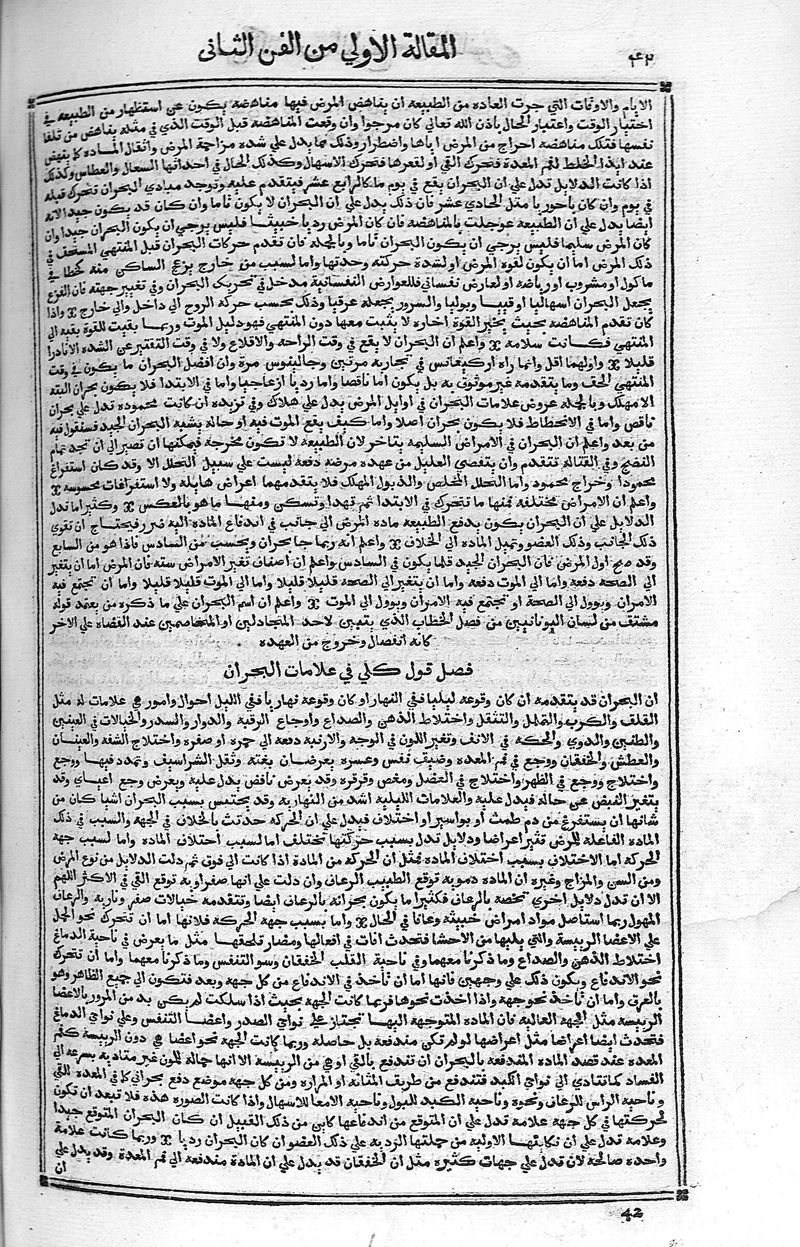 ٤٢
المقالة الاولي من الفن الثاني
الايام والاوقات التي جرت العاده من الطبيعه ان يناهض المرض فيها مناهضه يكون عن استظهار من الطبيعه في
اختيار الوقت واعتبار الحال باذن الله تعالي كان مرجوا وان وقعت المناهضه قبل الوقت الذي في مثله يناهض من تلقا
نفسها فتلك مناهضه احراج من المرض اياها واضطرار وذلك مما يدل علي شده مزاحمة المرض واثقال الماده كما ينهض
عند ايذا الخلط لفم المعدة فتحرك القي او لقعرها فتحرك الاسهال وكذلك الحال في احداثها السعال والعطاس وكذلك
اذا كانت الدلايل تدل علي ان البحران يقع في يوم ما كالرابع عشر فيتقدم عليه وتوجد مبادي البحران تتحرك قبله
في يوم وان كان باحوريا مثل الحادي عشر فان ذلك يدل علي ان البحران لا يكون تاما وان كان قد يكون جيدا لانه
ايضا يدل علي ان الطبيعه عوجلت بالمناهضه فان كان المرض رديا خبيثا فليس يرجي ان يكون البحران جيدا وان
كان المرض سليما فليس يرجي ان يكون البحران تاما وبالجمله فان تقدم حركات البحران قبل المنتهي المستحق في
ذلك المرض اما ان يكون لقوة المرض او لشدة حركته وحدتها واما لسبب من خارج يزعج الساكن منه كخطا في
ماكول او مشروب او رياضه او لعارض نفساني فللعوارض النفسانية مدخل في تحريك البحران وفي تغيير جهته فان الفزع
يجعل البحران اسهاليا او قيييا وبوليا والسرور يجعله عرقيا وذلك بحسب حركة الروح الي داخل والي خارج واذا
كان تقدم المناهضه بحيث يخير القوة اخاره لا يثبت معها دون المنتهي فهو دليل الموت وربما بقيت للقوة بقيه الي
المنتهي فكانت سلامه واعلم ان البحران لا يقع في وقت الراحه والاقلاع ولا في وقت التفتير عن الشده الا نادرا
قليلا واولهما اقل وانما راه اركيغانس في تجاربه مرتين وجالينوس مرة وان افضل البحران ما يكون في وقت
المنتهي الحق وما يتقدمه غير موثوق به بل يكون اما ناقصا واما رديا ازعاجيا واما في الابتدا فلا يكون بحران البته
الا مهلك وبالجمله عروض علامات البحران في اوايل المرض يدل علي هلاك وفي تزيده ان كانت محموده تدل علي بحران
ناقص واما في الانحطاط فلا يكون بحران اصلا واما كيف يقع الموت فيه او حاله يشبه البحران الجيد فسنقول فيه
من بعد واعلم ان البحران في الامراض السليمه يتاخر لان الطبيعه لا تكون محرجه فيمكنها ان تصبر الي ان تجد تمام
النضج وفي القتاله تتقدم وان يتفصي العليل من عهده مرضه دفعه ليست علي سبيل التحلل الا وقد كان استفراغ
محمودا وخراج محمود واما التحلل المخلص والذبول المهلك فلا يتقدمهما اعراض هايله ولا استفراغات محسوسه
واعلم ان الامراض مختلفه فمنها ما تتحرك في الابتدا ثم تهدا وتسكن ومنها ما هو بالعكس وكثيرا ما تدل
الدلايل علي ان البحران يكون بدفع الطبيعه ماده المرض الي جانب في اندفاع المادة اليه ضرر فيحتاج ان تقوي
ذلك الجانب وذلك العضو وتميل الماده الي الخلاف واعلم انه ربما جا بحران وبحسب من السادس فاذا هو من السابع
وقد صح اول المرض فان البحران الجيد قلما يكون في السادس واعلم ان اصناف تغير الامراض سته فان المرض اما ان يتغير
الي الصحه دفعه واما الي الموت دفعه واما ان يتغير الي الصحه قليلا قليلا واما الي الموت قليلا قليلا واما ان تجتمع فيه
الامران ويوول الي الصحة او تجتمع فيه الامران ويوول الي الموت واعلم ان اسم البحران علي ما ذكره من يعتمد قوله
مشتق من لسان اليونانيين من فصل الخطاب الذي يتبين لاحد المتجادلين او المتخاصمين عند القضاه علي الاخر
كانه انفصال وخروج من العهده
فصل قول كلي في علامات البحران
ان البحران قد يتقدمه ان كان وقوعه ليليا ففي النهار او كان وقوعه نهاريا ففي الليل احوال وامور هي علامات له مثل
القلق والكرب والتململ والتنقل واختلاط الذهن والصداع واوجاع الرقبه والدوار والسدر والخيالات في العينين
والطنين والدوي والحكه في الانف وتغير اللون في الوجه والارنبة دفعه الي حمره او صفره واختلاج الشفه والغثيان
والعطش والخفقان ووجع في فم المعده وضيق نفس وعسره يعرضان بغته وثقل الشراسيف وتمدد فيها ووجع
واختلاج ووجع في الظهر واختلاج في العضل ومغص وقرقره وقد يعرض نافض يدل عليه ويعرض وجع اعيايي وقد
يتغير النبض عن حاله فيدل عليه والعلامات الليليه اشد من النهاريه وقد يحتبس بسبب البحران اشيا كان من
شانها ان يستفرغ من دم طمث او بواسير او اختلاف فيدل علي ان الحركه حدثت بالخلاف في الجهه والسبب في ذلك
المادة الفاعله للمرض تثير اعراضا ودلايل تدل بسبب حركتها تختلف اما لسبب اختلاف الماده واما لسبب جهه
الحركه اما الاختلاف بسبب اختلاف الماده فمثل ان الحركه من المادة اذا كانت الي فوق ثم دلت الدلايل من نوع المرض
ومن السن والمزاج وغيره ان الماده دمويه توقع الطبيب الرعاف وان دلت علي انها صفراويه توقع القي في الاكثر اللهم
الا ان تدل دلايل اخري تخصه بالرعاف فكثيرا ما يكون بحرانه بالرعاف ايضا وتتقدمه خيالات صفر وناريه والرعاف
المهول ربما استاصل مواد امراض خبيثه وعافا في الحال واما بسبب جهه الحركه فلانها اما ان تتحرك نحو الحمل
علي الاعضا الرييسة والتي يليها من الاحشا فتحدث افات في افعالها ومضار تلحقها مثل ما يعرض في ناحية الدماغ
اختلاط الذهن والصداع وما ذكرنا معهما وفي ناحية القلب الخفقان وسو التنفس وما ذكرنا معهما واما ان تتحرك
نحو الاندفاع ويكون ذلك علي وجهين فانها اما ان تأخذ في الاندفاع من كل جهه وبعد فتكون الي جميع الظاهر وهو
بالعرق واما ان تأخذ نحو جهه واذا اخذت نحوها فربما كانت الجهه بحيث اذا سلكت لم يكن بد من المرور بالاعضا
الرييسه مثل الجهه العاليه فان الماده المتوجهه اليها تجتاز علي نواحي الصدر واعضا التنفس وعلي نواحي الدماغ
فتحدث ايضا اعراضا مثل اعراضها لو لم تكن مندفعه بل حاصله وربما كانت الجهه نحو اعضا هي دون الرييسة كفم
المعده عند قصد الماده المندفعه بالبحران ان تندفع بالقي او هي من الرييسة الا انها حماله للمون غير متاديه بسرعه الي
الفساد كما تتادي الي نواحي الكبد فتندفع من طريق المثانه او المراره ومن كل جهه موضع دفع بحراني كما في المعده للقي
وناحيه الراس للرعاف ونحوه وناحية الكبد للبول وناحية الامعا للاسهال واذا كانت الصوره هذه فلا تبعد ان تكون
لحركتها في كل جهه علامه تدل علي ان المتوقع من اندفاعها كاين من ذلك القبيل ان كان البحران المتوقع جيدا
وعلامه تدل علي ان نكايتها الاوليه من حملتها الرديه علي ذلك العضو ان كان البحران رديا وربما كانت علامة
واحده صالحه لان تدل علي جهات كثيره مثل ان الخفقان قد يدل علي ان المادة مندفعه الي فم المعدة وقد يدل علي
ان
42